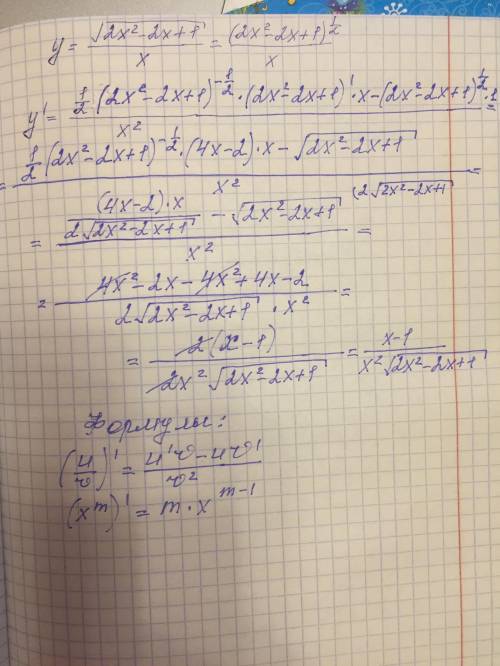 y = √(2x²-2x+1) / x = (2x²-2x+1)^(1/2) / x
y' = (1/2·(2x²-2x+1)^(-1/2)·(2x²-2x+1)'·x-(2x²-2x+1)^(1/2)·1) / x² =
= (1/2(2x²-2x+1)^(-1/2)·(4x-2)·x-√(2x²-2x+1)) / x² =
= ((4x-2)·x / 2√(2x²-2x+1) - √(2x²-2x+1) (2√(2x²-2x+1)) / x² =
= (4x²-2x-4x²+4x-2) / (2√(2x²-2x+1)·x²) =
= 2(x-1) / (2x²√(2x²-2x+1)) = (x-1) / (x²√(2x²-2x+1))
Формулы:
(u/v)' = (u'v-uv') / v²
(x^m)' = m·x^(m-1)